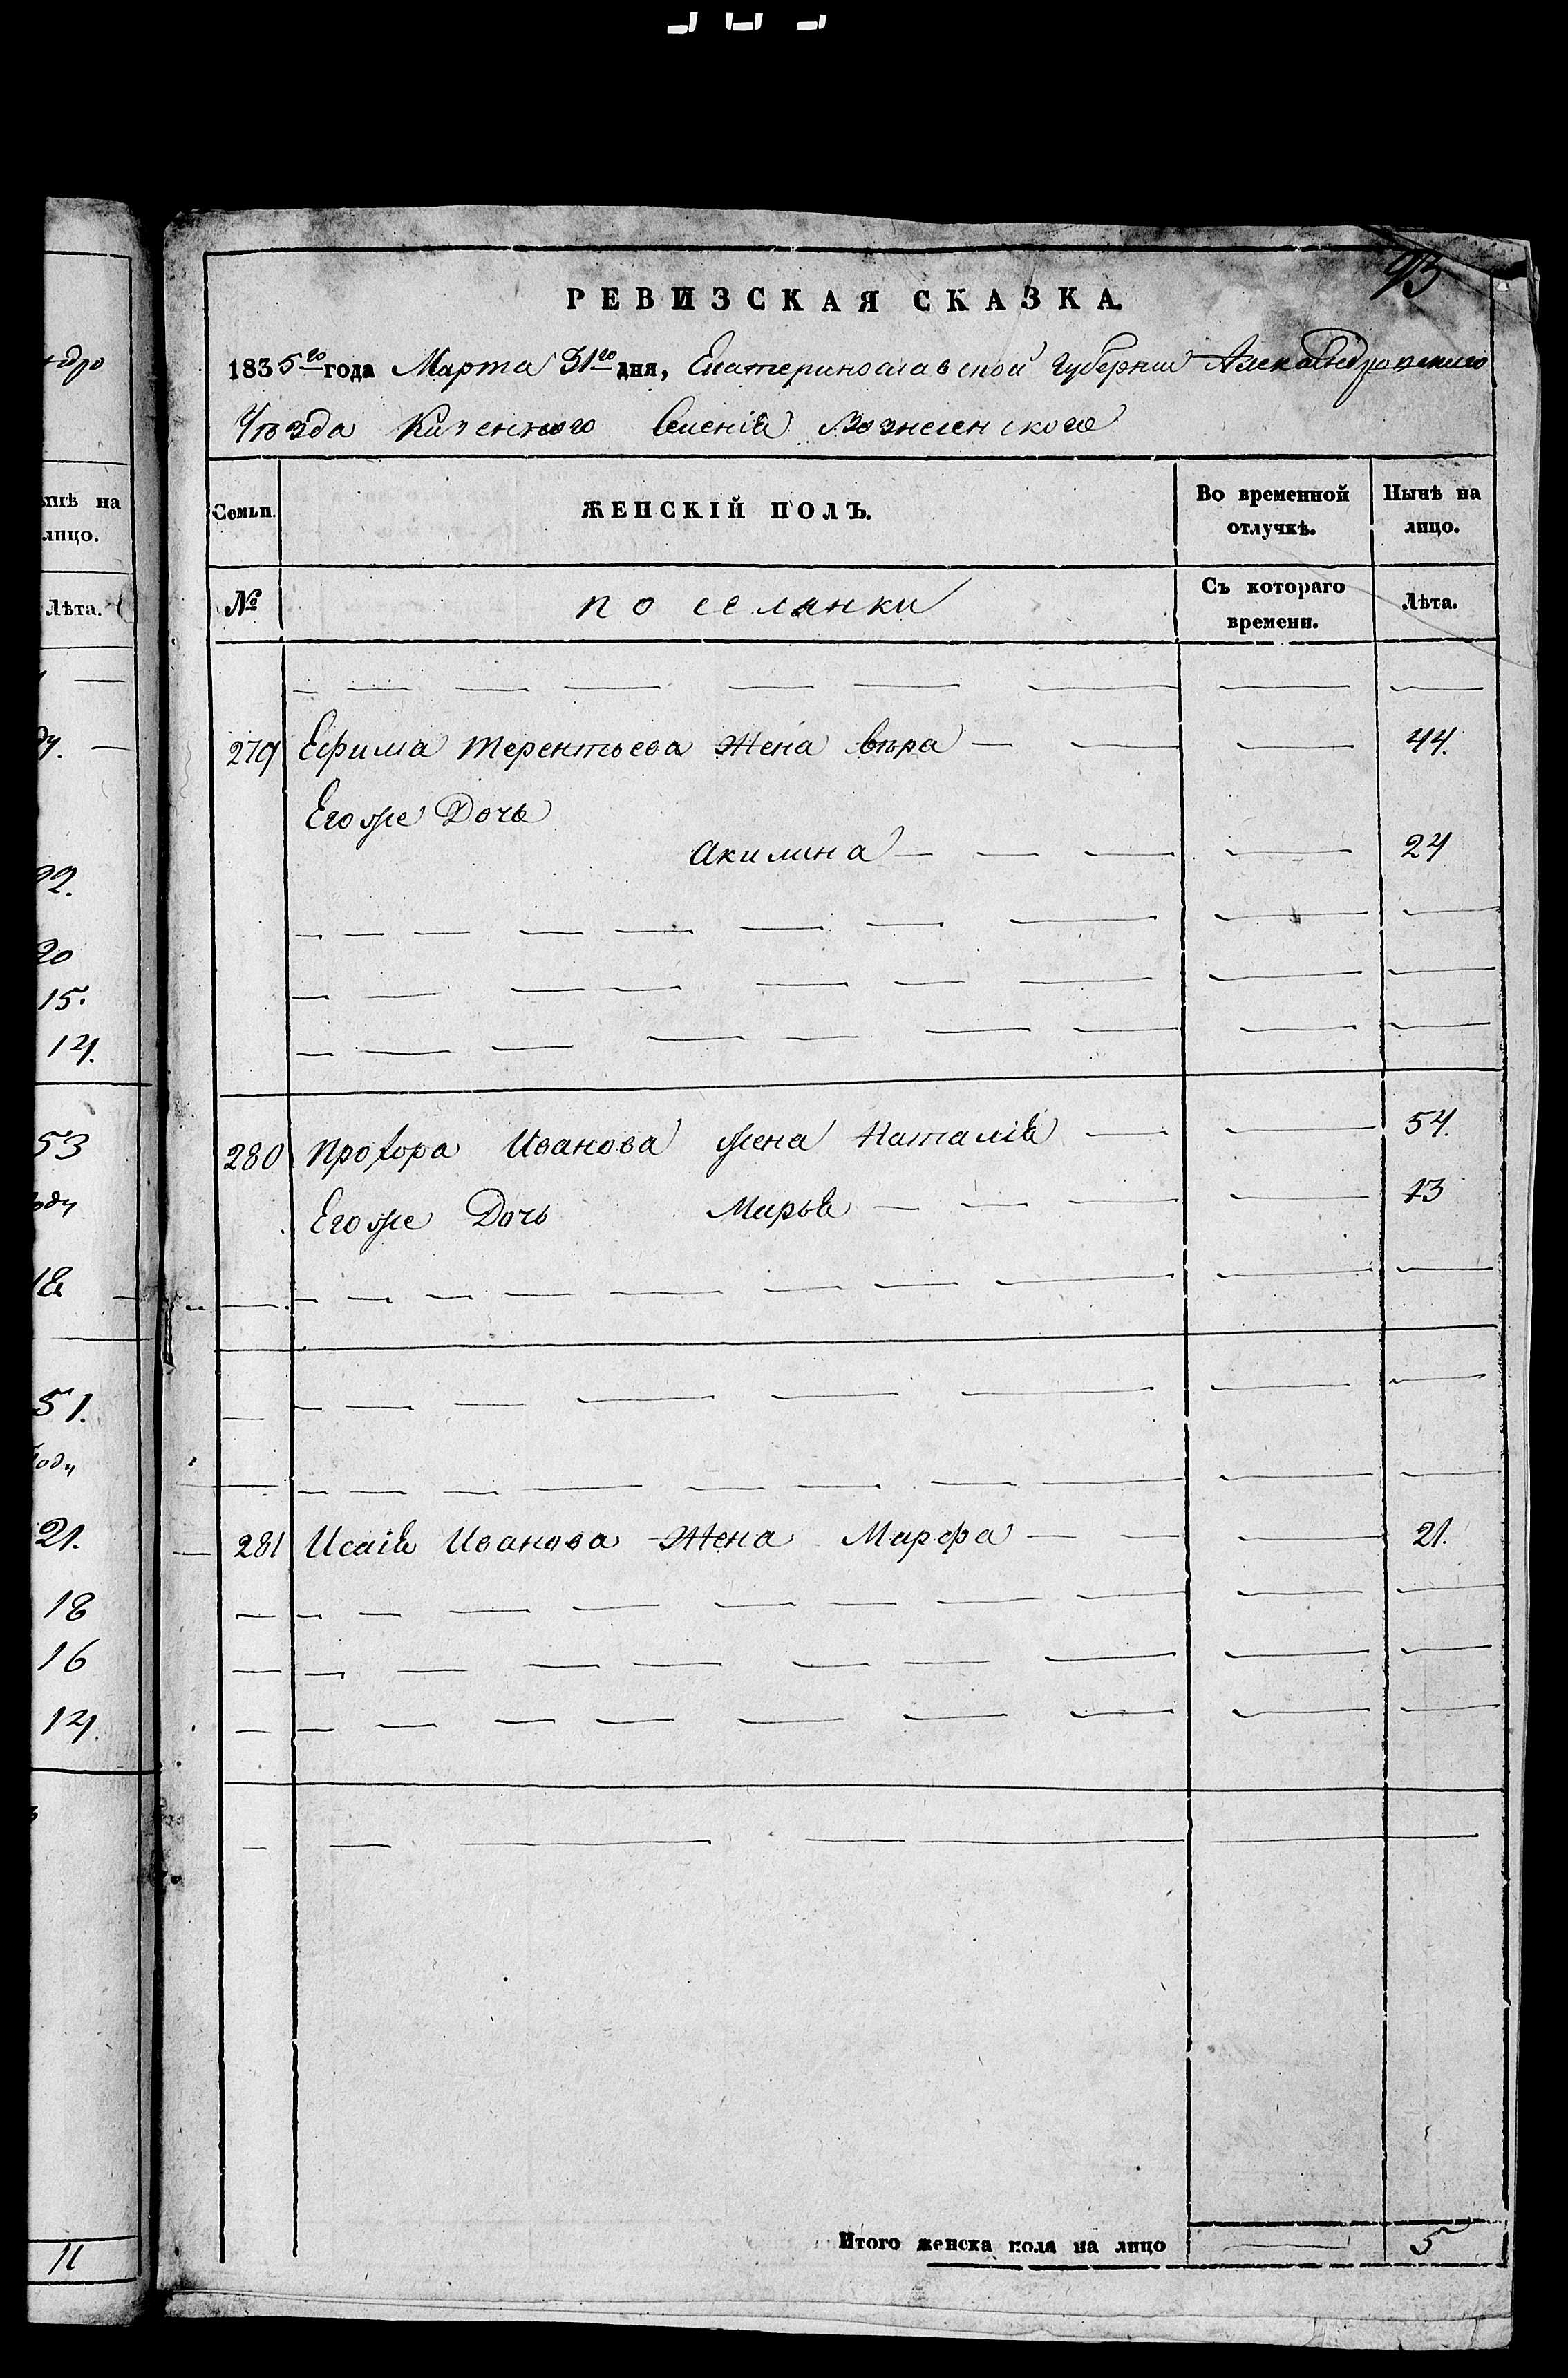 93
РЕВИЗСКАЯ СКАЗКА.
1835го года Марта 31го дня, Екатеринославской Губернии Александровского
Уезда Казенного Селенія Вознесенского
Семьи.
ЖЕНСКІЙ ПОЛЪ.
Во временной отлучкѣ.
Нынѣ на лицо.
№
поселянки
Съ котораго времени.
Лѣта.
279 Ефима Терентьева Жена вѣра 44.
Егоже Дочь
Акилина 24
280 Прохора Иванова Жена Наталія 54.
Егоже Дочь Марья 13
281 Исаія Иванова Жена Марфа 21.
Итого женска пола на лицо 5
ынѣ на
лицо.
Лѣта.
22.
20
15.
14.
53
18
51.
21.
18
16
14.
11